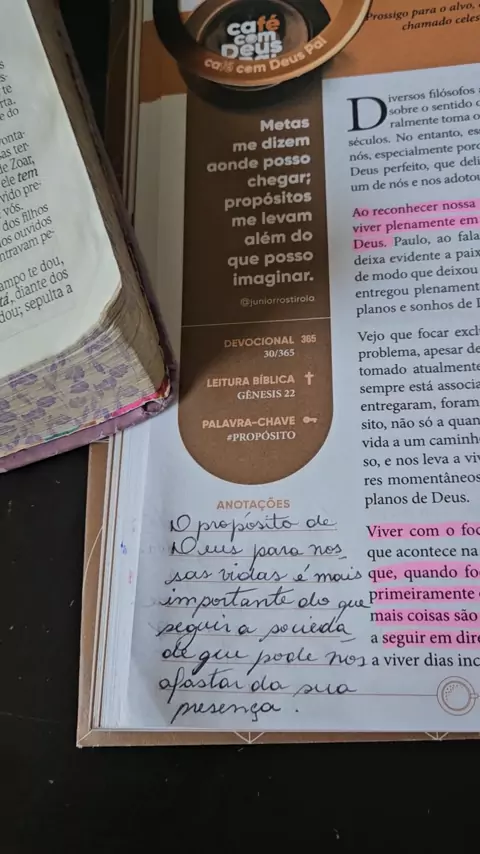 te
do
rta.
onta-
as ter
e Zoar,
ele tem
vido pre-
vós.
dos filhos
os ouvidos
ntravam pe-
ampo te dou,
tá, diante dos
dou; sepulta a
café
com
Deus
Pai
café com Deus Pai
Prossigo para o alvo,
chamado celes
Metas
me dizem
aonde posso
chegar;
propósitos
me levam
além do
que posso
imaginar.
@juniorrostirola
DEVOCIONAL 365
30/365
LEITURA BÍBLICA
GÊNESIS 22
PALAVRA-CHAVE
#PROPÓSITO
ANOTAÇÕES
O propósito de
Deus para nos
sas vidas é mais
importante do que
seguir a socieda
de que pode nos
afastar da sua
presença.
Diversos filósofos
sobre o sentido
ralmente toma o
séculos. No entanto, es
nós, especialmente porq
Deus perfeito, que deli
um de nós e nos adotou
Ao reconhecer nossa
viver plenamente em
Deus. Paulo, ao fala
deixa evidente a paix
de modo que deixou
entregou plenament
planos e sonhos de D
Vejo que focar excl
problema, apesar de
tomado atualmente
sempre está associa
entregaram, foram
sito, não só a quan
vida a um caminho
so, e nos leva a viv
res momentâneos
planos de Deus.
Viver com o foc
que acontece na
que, quando fo
primeiramente
mais coisas são
a seguir em dire
a viver dias inc